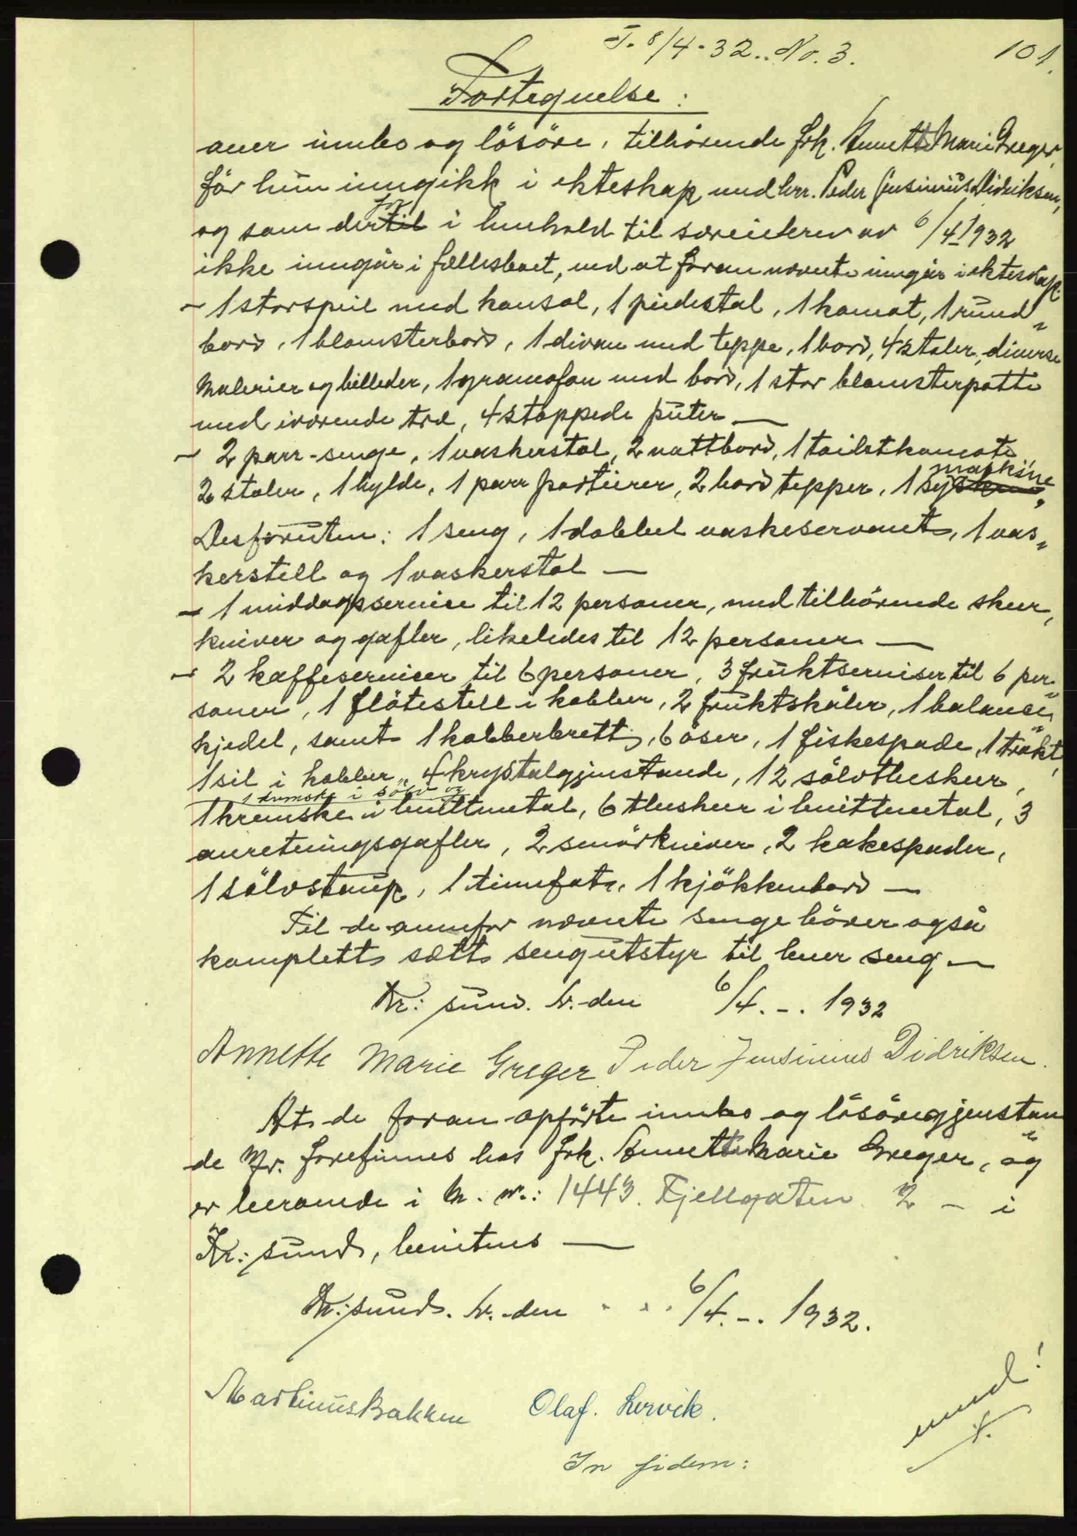 T. 8/4-32.. No. 3. 101.
Fortegnelse:
over innbo og lösöre, tilhörende frk. Annette Marie Greger,
för hun inngikk i ekteskap med hrr. Peder Jensinius Didriksen,
og som der for i henhold til særeiekrev av 6/4 1932
ikke inngår i fællesboet, ved at foran nevnte inngår i ekteskap
- 1 storspeil med konsol, 1 piedestal, 1 komot, 1 rund"
bord, 1 blomsterbord, 1 divan med teppe, 1 bord, 4 stoler, diverse
Malerier og billeder, 1 gramofon med bord, 1 stor blomsterpotte
med iværende træ, 4 stoppede puter —
- 2 parr-senge, 1 vaskerstol, 2 nattbord, 1 toiletkomote
maskine
2 stoler, 1 hylde, 1 parr portierer, 2 bord tepper, 1 sy"
Desforuten: 1 seng, 1 dobbel vaskeservant, 1 vas"
kerstell og 1 vaskerstol —
- 1 middagsservise til 12 personer, med tilhörende skeer,
kniver og gafler, likeledes til 12 personer —
- 2 kaffeserviser til 6 personer, 3 fruktserviser til 6 per"
soner, 1 flötestell i kobber, 2 fruktskåler, 1 balanse"
kjedel, samt 1 kobberbrett, 6 öser, 1 fiskespade, 1 trakt,
1 sil i kobber, 4 krystalgjenstande, 12 sölvtheskeer,
i sölv og
1 kremske i hvittmetal, 6 theskeer i hvittmetal, 3
anretningsgafler, 2 smörkniver, 2 kakespader,
1 sölvstaup, 1 tinnfat, 1 kjökkenbord —
Til de ovenfor nevnte senge hörer også
komplett sett sengutstyr til hver seng —
Kr: sund. N. den 6/4. -. 1932
Annette Marie Greger Peder Jensinius Didriksen.
At de foran opförte innbo og lösöregjenstan"
de forefinnes hos frk. Annette Marie Greger, og
er beroende i M. nr.: 1443. Fjellgaten 2 - i
Kr: sund, bevitnes —
Kr: sund. N. den . . . 6/4. -. 1932.
Martinus Bakken Olaf. Lervik.
In fidem: